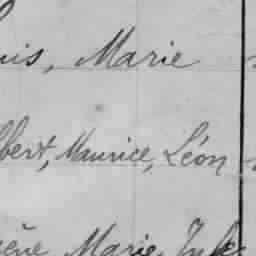 uis, Marie
lbert, Maurice, Léon
ène Marie Jules